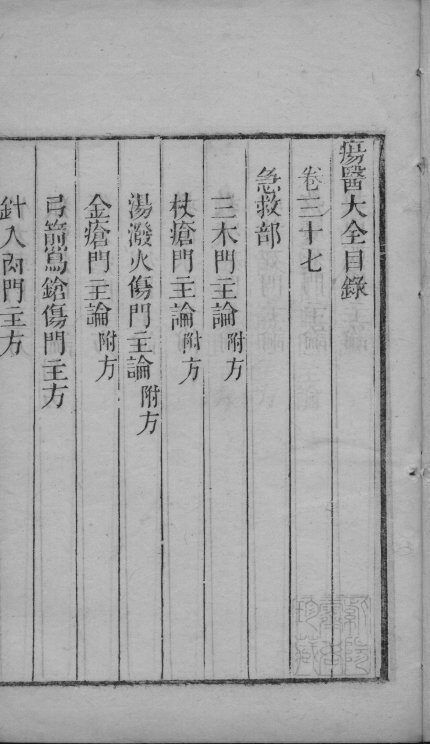 瘍醫大全目錄
卷三十七
急救部
三木門主論附方
杖瘡門主論附方
湯潑火傷門主論附方
金瘡門主論附方
弓箭鳥鎗傷門主方
針入肉門主方